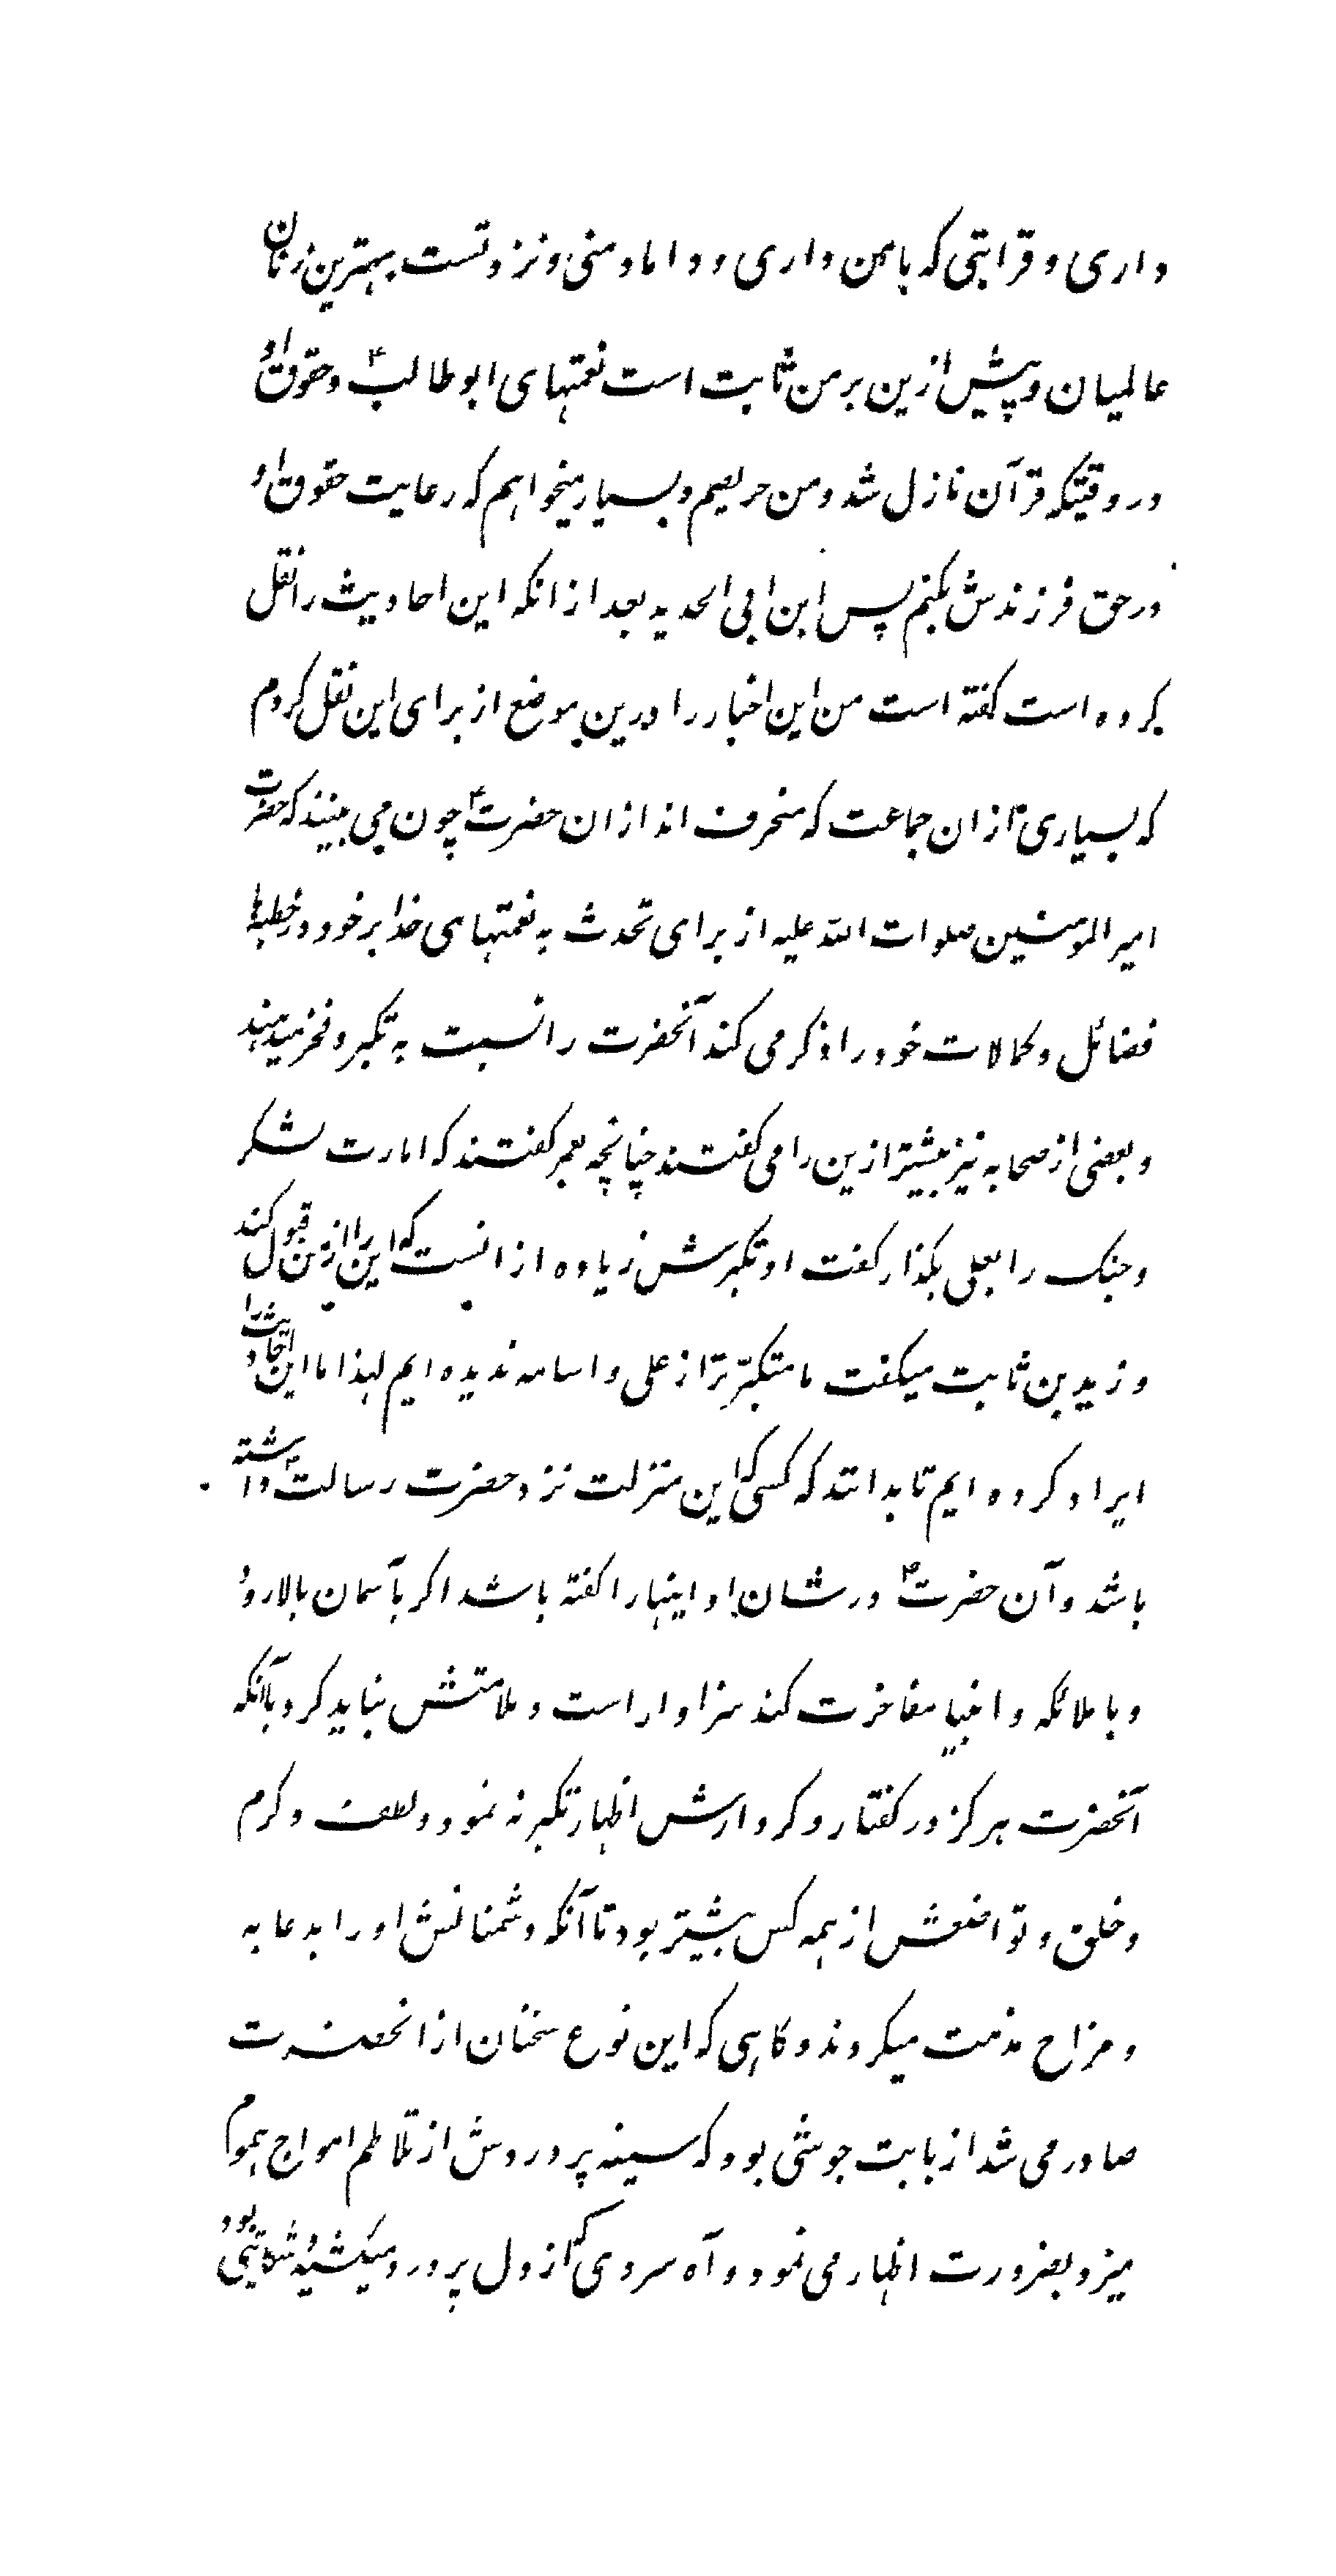 داری و قرابتی که بامن داری و داماد منی و نزد تست بهترین زنان
عالمیان و پیش ازین بر من ثابت است نعمتهای ابوطالبؑ و حقوق او
در وقتیکه قرآن نازل شد و من حریصم و بسیار میخواهم که رعایت حقوق او
در حق فرزندش بکنم پس ابن ابی الحدید بعد از انکه این احادیث را نقل
کرده است کفته است من این اخبار را درین موضع از برای این نقل کردم
که بسیاری از ان جماعت که منحرف اند از ان حضرتؑ چون می بینند که حضرت
امیر المؤمنین صلوات الله علیه از برای تحدث به نعمتهای خدا بر خود در خطبها
فضائل و کمالات خود را ذکر می کند آنحضرت را نسبت به تکبر و فخر میدهند
و بعضی از صحابه نیز بیشتر ازین را می کفتند چنانچه بعمر کفتند که امارت لشکر
و جنک را بعلی بکذار کفت او تکبرش زیاده از انست که این را از من قبول کند
و زید بن ثابت میکفت ما متکبّرتر از علی و اسامه ندیده ایم لهذا ما این احادیث را
ایراد کرده ایم تا بدانند که کسی که این منزلت نزد حضرت رسالتؐ داشته
باشد و آن حضرتؐ در شان او اینها را کفته باشد اکر بآسمان بالا رود
و با ملائکه و انبیا مفاخرت کند سزاوار است و ملامتش نباید کرد با آنکه
آنحضرت هرکز در کفتار و کردارش اظهار تکبر نه نمود و لطف و کرم
و خلق و تواضعش از همه کس بیشتر بود تا آنکه دشمنانش او را بدعابه
و مزاح مذمت میکردند و کاهی که این نوع سخنان از انحضرت
صادر می شد از بابت جوشی بود که سینه پر دردش از تلاطم امواج هموم
میزد و بضرورت اظهار می نمود و آه سردی که از دل پر درد میکشید و شکایتی بود